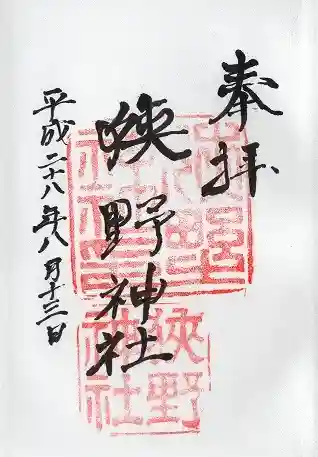 奉拝
狹野神社
平成二十八年八月十三日
狹野
神社